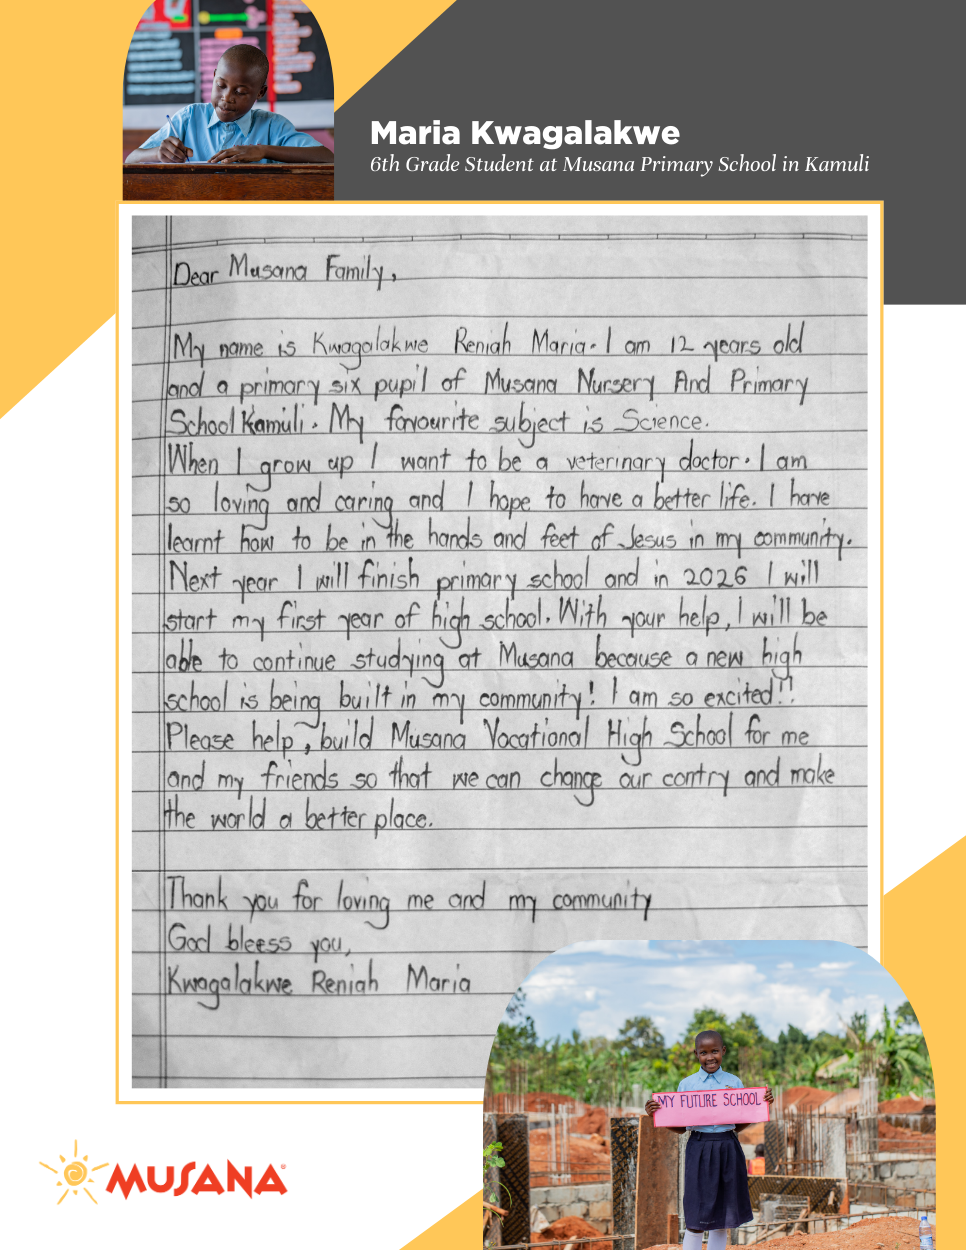 Maria Kwagalakwe
6th Grade Student at Musana Primary School in Kamuli
Dear Musana Family,
My name is Kwagalakwe Reniah Maria. I am 12 years old
and a primary six pupil of Musana Nursery And Primary
School Kamuli. My favourite subject is Science.
When I grow up I want to be a veterinary doctor. I am
so loving and caring and I hope to have a better life. I have
learnt how to be in the hands and feet of Jesus in my community.
Next year I will finish primary school and in 2026 I will
start my first year of high school. With your help, I will be
able to continue studying at Musana because a new high
school is being built in my community! I am so excited!!
Please help, build Musana Vocational High School for me
and my friends so that we can change our contry and make
the world a better place.
Thank you for loving me and my community
God bleess you,
Kwagalakwe Reniah Maria
MY FUTURE SCHOOL
MUSANA®